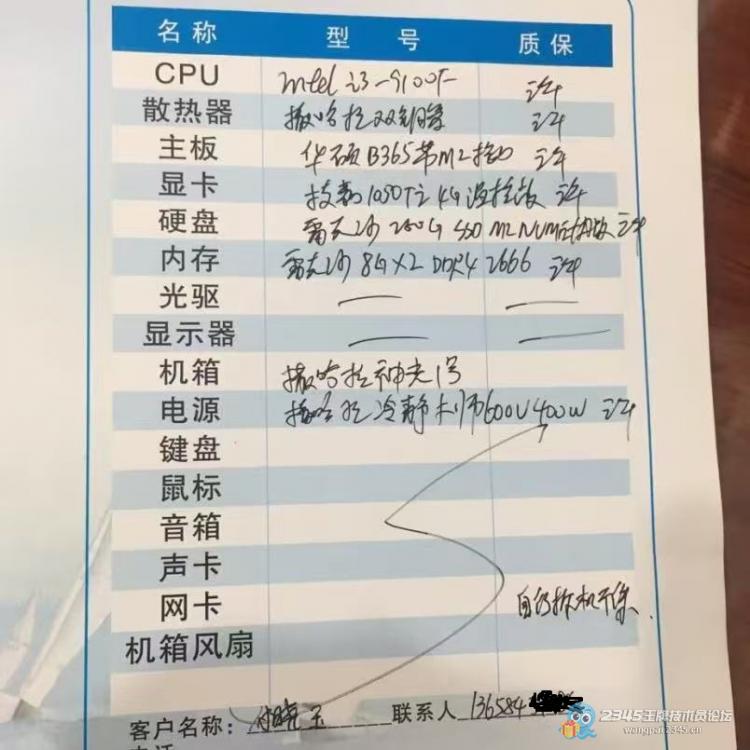 名称 型号 质保
CPU intel i3-9100F 三年
散热器 撒哈拉双铜管 三年
主板 华硕B365带M2接口 三年
显卡 技嘉1050Ti 4G 三年
硬盘 雷克沙 250G SSD M2 三年
内存 雷克沙 8G×2 DDR4 2666 三年
光驱 — —
显示器 — —
机箱 撒哈拉神光1号
电源 撒哈拉冷静大师600V 400W 三年
键盘
鼠标
音箱
声卡
网卡 自行拆机不保
机箱风扇
客户名称: 联系人 136584
2345王牌技术员论坛
wangpai2345.cn